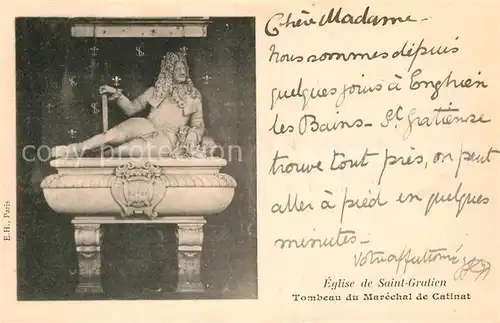 Chère Madame -
Nous sommes depuis
quelques jours à Enghien
les Bains - St. Gratien se
trouve tout près, on peut
aller à pied en quelques
minutes -
Votre affectionnée
Église de Saint-Gratien
Tombeau du Maréchal de Catinat
E.H., Paris